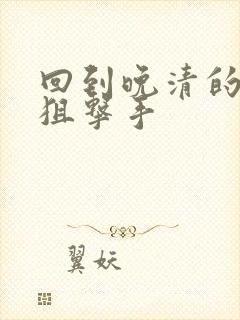 回到晚清的
狙擊手
翼妖